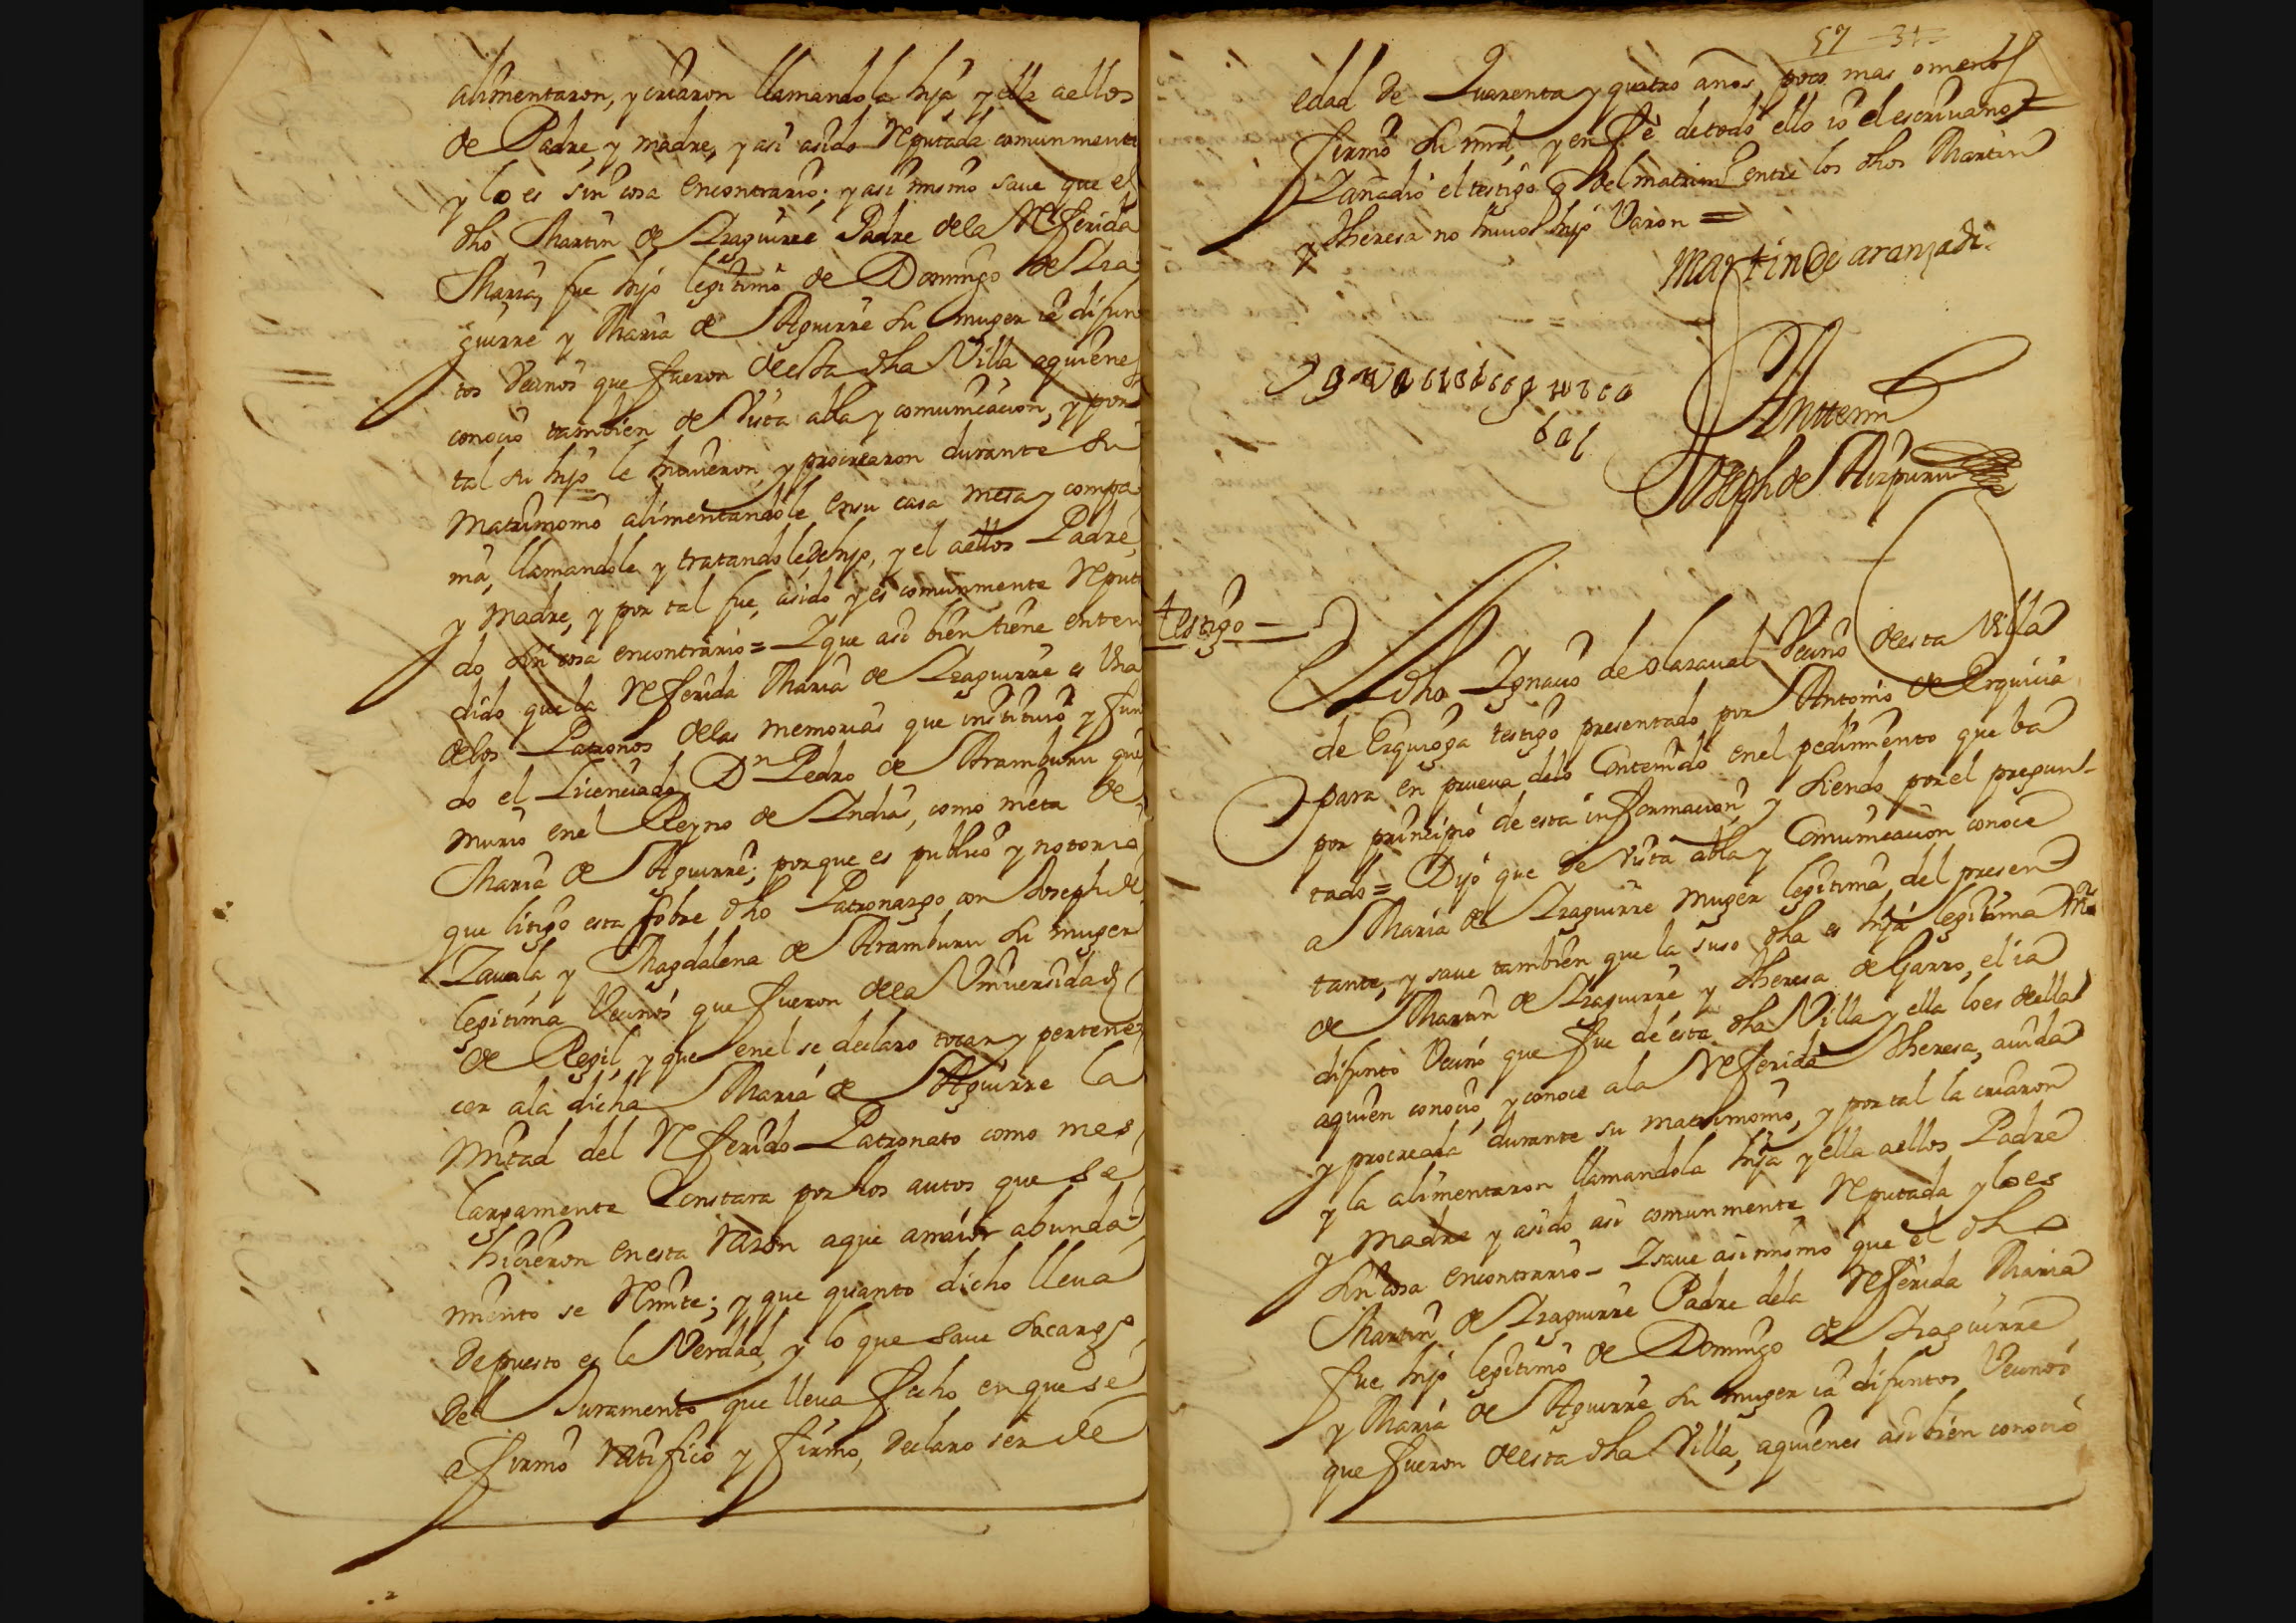 alimentaron, y criaron llamandola hija y ella aellos
de Padre, y madre, y asi asido Reputada comunmente
y lo es sin cosa encontrario; y asi mismo saue que el
dho Martin de Izaguirre Padre dela Referida
Maria, fue hijo legitimo de Domingo de Iza
guirre y Maria de Aguirre su muger ia difun
tos Vecinos que fueron desta dha Villa aquienes
conocio tambien de Vista abla y comunicacion, y por
tal su hijo le huuieron, y procrearon durante su
Matrimonio alimentandole en su casa mesa y compa
nia, llamandole y tratandole de hijo, y el aellos Padre,
y Madre, y por tal fue, asido y es comunmente Reputa
do sin cosa encontrario = I que asi bien tiene enten
dido que la Referida Maria de Izaguirre es Vna
delos Patronos delas memorias que instituió y fun
do el Licenciado Dn Pedro de Aramburu que
murio enel Reyno de Indias, como nieta de
Maria de Aguirre; porque es publico y notorio
que litigo esta sobre dho Patronazgo con Joseph de
Zauala y Magdalena de Aramburu su muger
legitima Vecinos que fueron dela Vniuersidad
de Regil, y que enel se declaro tocar y pertene
cer ala dicha Maria de Aguirre la
Mitad del Referido Patronato como mas
largamente Constara por los autos que se
hicieron en esta razon aque amaior abunda-
miento se Remite; y que quanto dicho lleua
depuesto es la Verdad, y lo que saue socargo
del Juramento que lleua fecho en que se
afirmó ratificó y firmo, declaro ser de
57 31
edad de Quarenta y quatro años, poco mas omenos
firmó su mrd, y en fè de todo ello io el escriuano =
I añadio el testigo q del matrimº entre los dhos Martin
y Theresa no huuo hijo Varon =
Martin de aranzadi
Antemi
Joseph de Aizpuru
testigo
El dho Ignacio de olazaual Vecino de esta Villa
de Ezquioga testigo presentado por Antonio de Erquicia
para en prueua delo Contenido enel pedimiento que ba
por principio de esta informacion, y siendo por el pregun-
tado = Dijo que de Vista abla y Comunicacion conoce
a Maria de Izaguirre muger legitima del presen
tante, y saue tambien que la suso dha es hija legitima
de Martin de Izaguirre y Theresa de Garro, el ia
difunto Vecino que fue de esta dha Villa y ella lo es della
aquien conocio, y conoce ala Referida Theresa, auida
y procreada durante su matrimonio, y por tal la criaron
y la alimentaron llamandola hija y ella aellos Padre
y Madre y asido asi comunmente Reputada y lo es
sin cosa encontrario - I saue asimismo que el dho
Martin de Izaguirre Padre dela Referida Maria
fue hijo legitimo de Domingo de Izaguirre
y Maria de Aguirre su muger ia difuntos Vecinos
que fueron de esta dha Villa, aquienes asi bien conocio